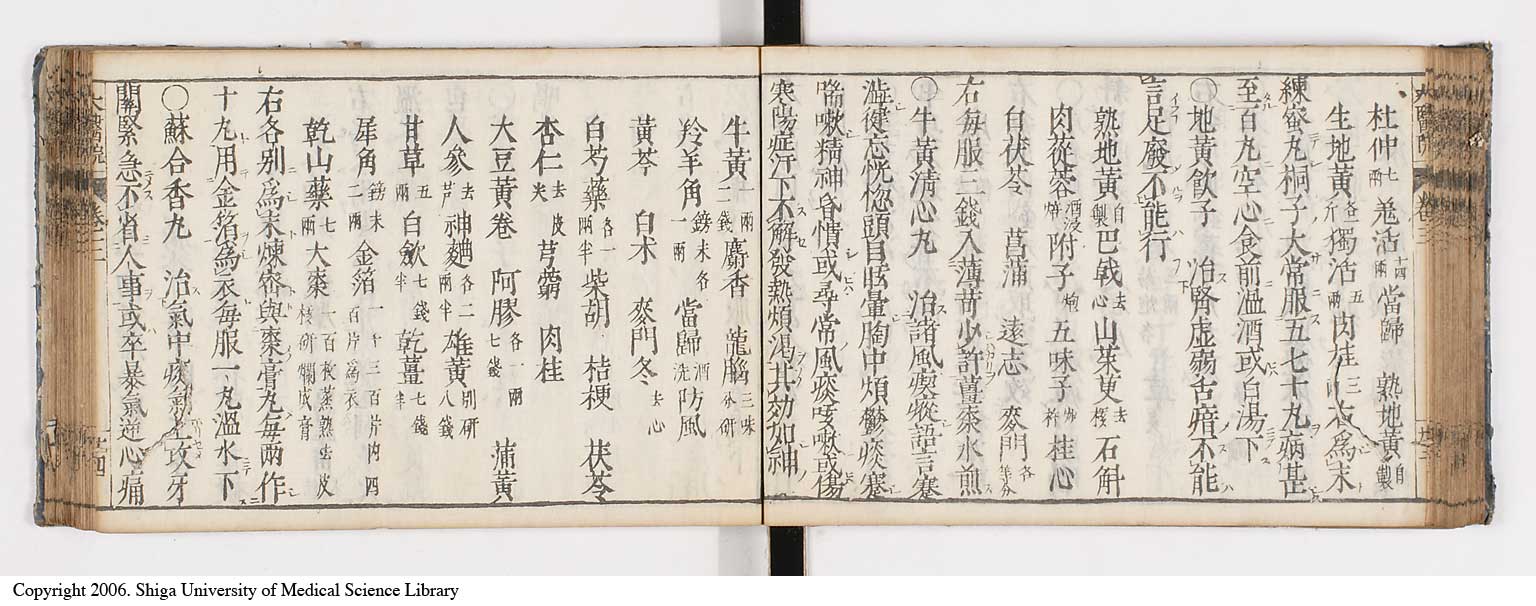 杜仲七兩 羗活十四兩 當歸 熟地黃自製
生地黃各一斤 獨活五兩 肉桂三兩 右爲末
練蜜丸桐子大常服五七十丸病甚
至百丸空心食前溫酒或白湯下
〇地黃飲子 治腎虛弱舌瘖不能
言足廢不能行
熟地黃自製 巴戟去心 山茱萸去核 石斛
肉蓯蓉酒浸焙 附子炮 五味子 桂心
白茯苓 菖蒲 遠志 麥門各等分
右每服三錢入薄荷少許薑棗水煎
〇牛黃清心丸 治諸風瘛瘲語言蹇
澁健忘恍惚頭目眩暈胸中煩鬱痰塞
喘嗽精神昏憒或尋常風痰咳嗽或傷
寒陽症汗下不解發熱煩渴其効如神
牛黃一兩二錢 麝香 龍腦三味分研
羚羊角鎊末各一兩 當歸酒洗 防風
黃芩 白朮 麥門冬去心
白芍藥各一兩半 柴胡 桔梗 茯苓
杏仁去皮尖 芎藭 肉桂
大豆黃卷 阿膠各一兩七錢 蒲黃
人參去芦 神麯各二兩半 雄黃別研八錢
甘草五兩 白歛七錢半 乾薑七錢半
犀角鎊末二兩 金箔一千三百片內四百片爲衣
乾山藥七兩 大棗一百枚蒸熟去皮核研爛成膏
右各別爲末煉蜜與棗膏丸每兩作
十丸用金箔爲衣每服一丸溫水下
〇蘇合香丸 治氣中痰氣上攻牙
關緊急不省人事或卒暴氣逆心痛
Copyright 2006. Shiga University of Medical Science Library